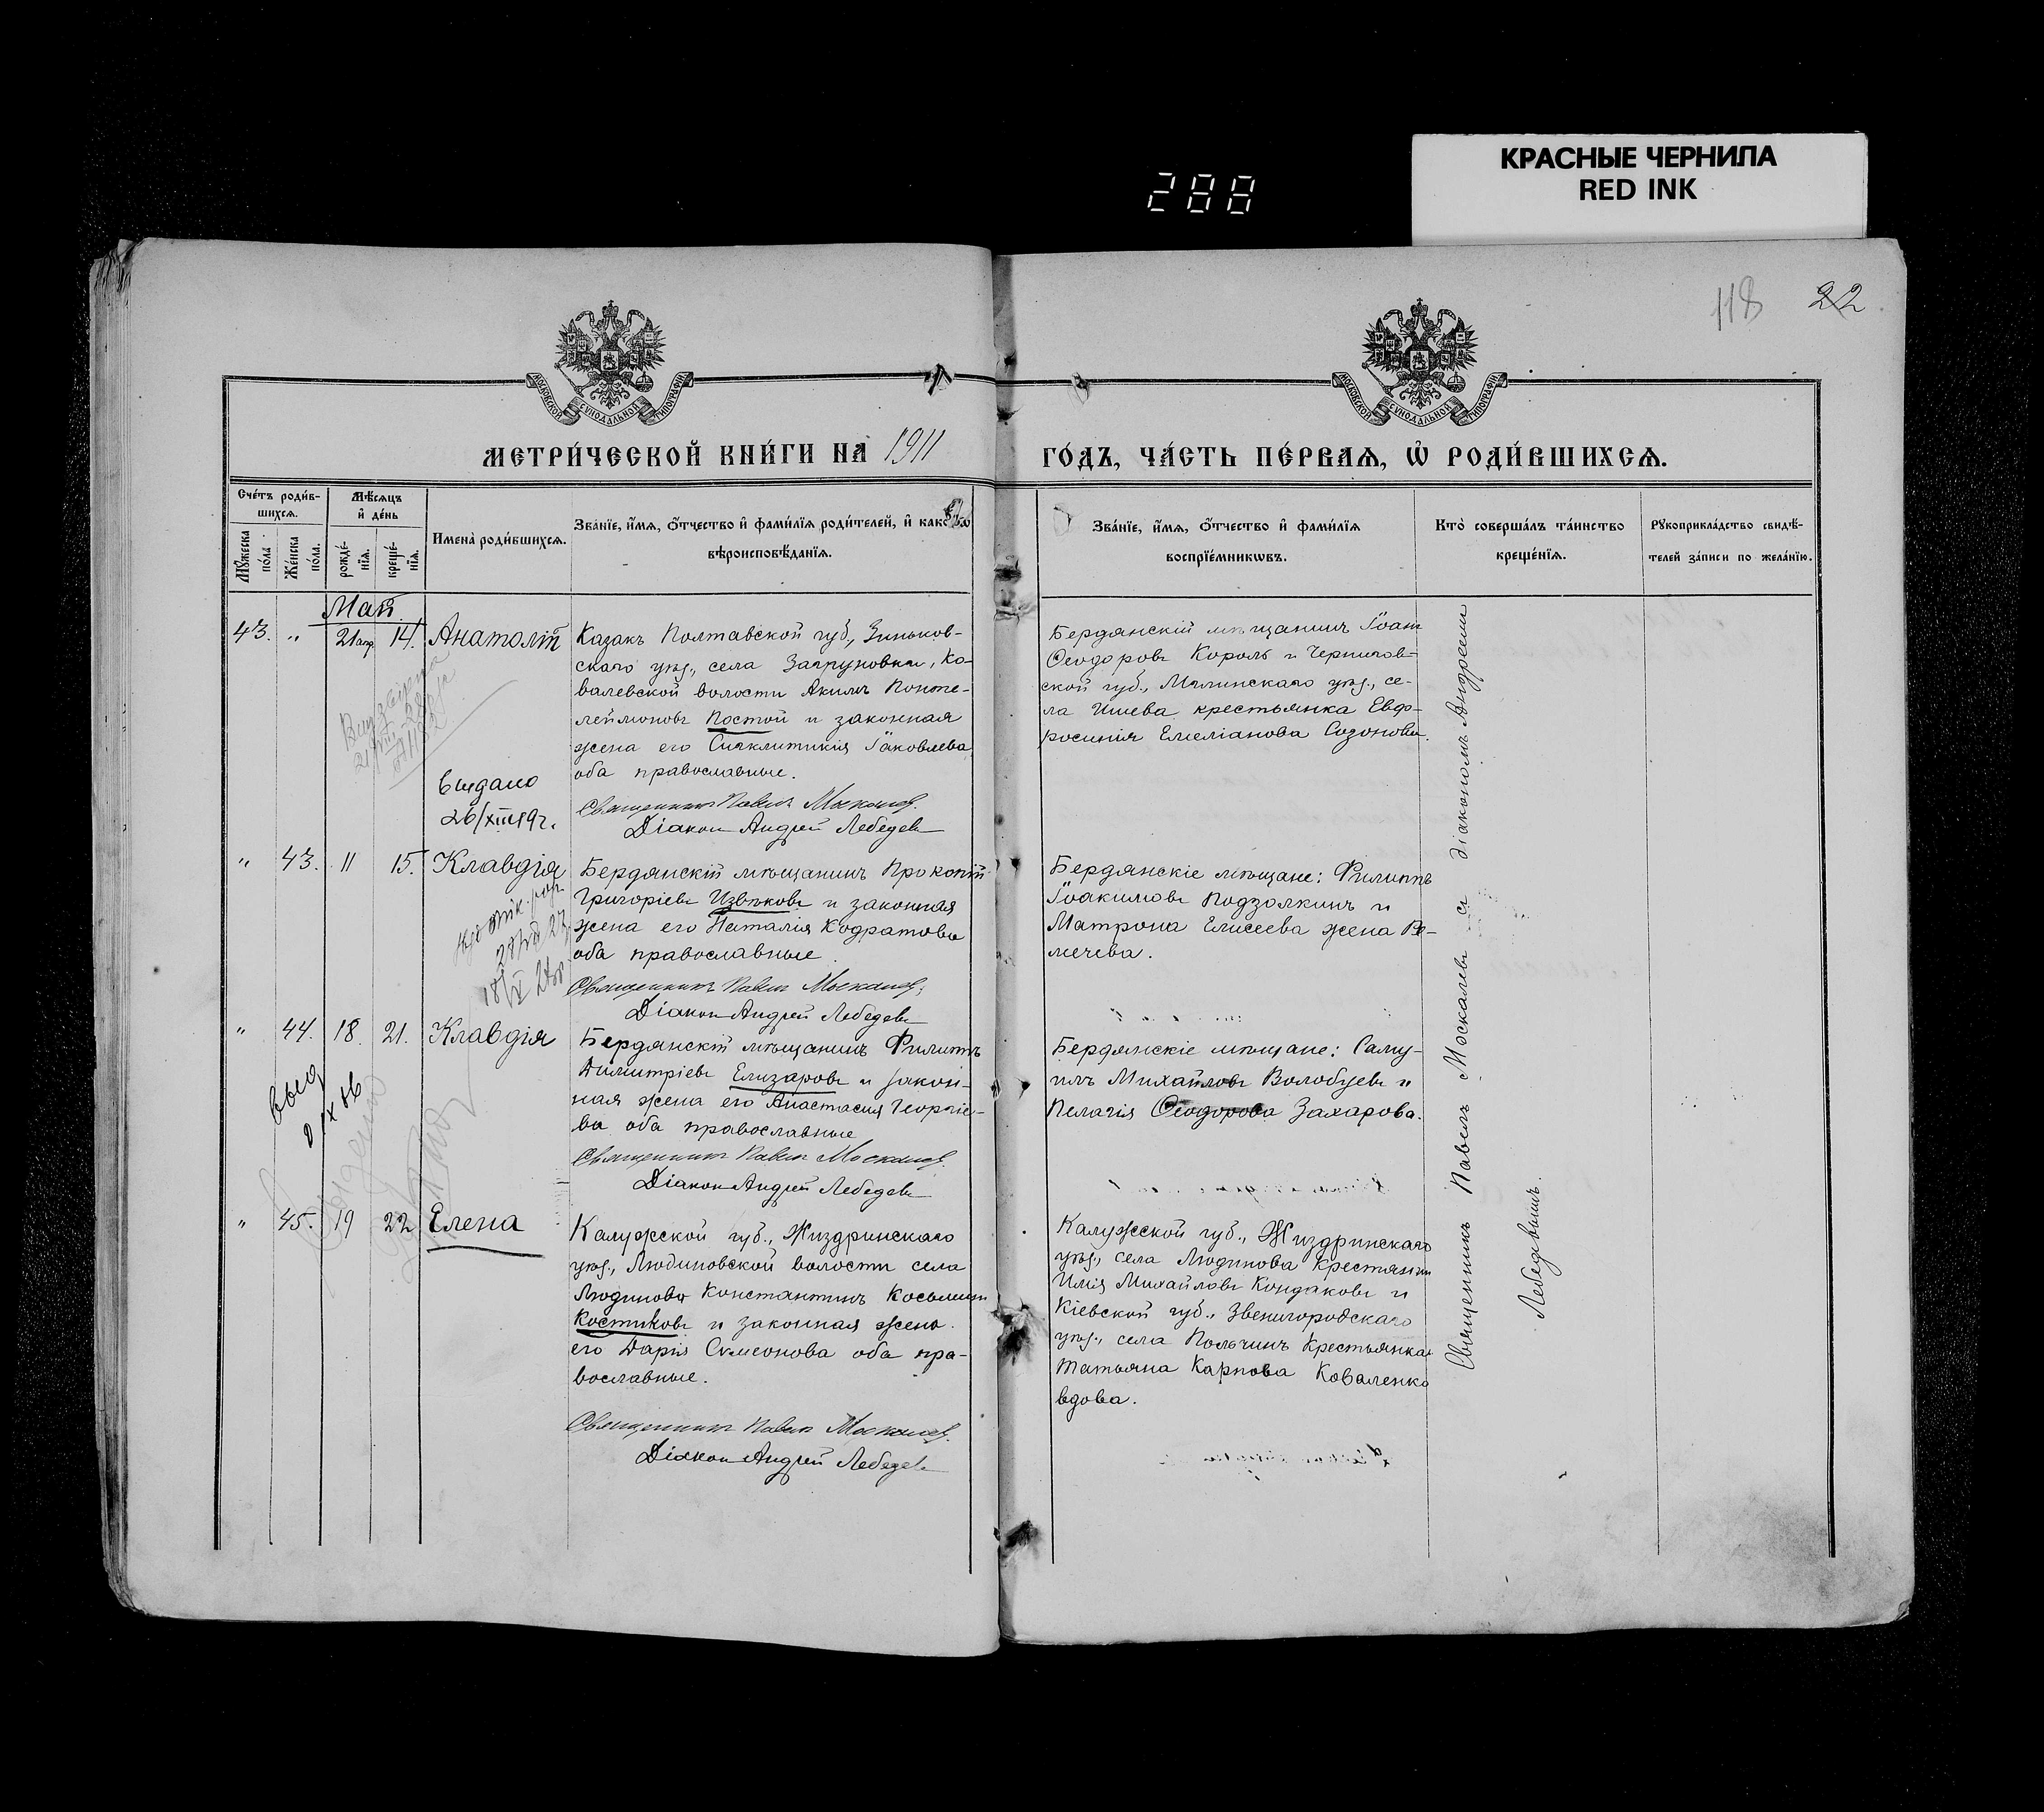 КРАСНЫЕ ЧЕРНИЛА
RED INK
288
118 22
МОСКОВСКОЙ СѴНОДАЛЬНОЙ ТИПОГРАФІИ
МОСКОВСКОЙ СѴНОДАЛЬНОЙ ТИПОГРАФІИ
МЕТРИ́ЧЕСКОЙ КНИ́ГИ НА 1911 ГО́ДЪ, ЧА́СТЬ ПЕ́РВАѦ, Ѡ҆ РОДИ́ВШИХСѦ.
Сче́тъ роди́в-
шихсѧ.
Мꙋ́жеска по́ла.
Же́нска по́ла.
Мѣ́сѧцъ
и҆ де́нь
рожде́-
нїѧ.
креще́-
нїѧ.
Имена̀ роди́вшихсѧ.
Зва́нїе, и҆́мѧ, ѻ҆́тчество и҆ фами́лїѧ роди́телей, и҆ како́гѡ
вѣроисповѣ́данїѧ.
Зва́нїе, и҆́мѧ, ѻ҆́тчество и҆ фами́лїѧ
воспрїе́мникѡвъ.
Кто̀ соверша́лъ та́инство
креще́нїѧ.
Рꙋкоприкла́дство свидѣ́-
телей за́писи по жела́нїю.
Май.
43. " 21 апр. 14. Анатолій
Казакъ Полтавской губ., Зиньков-
скаго уѣз., села Загруновки, Ко-
валевской волости Акимъ Понте-
леймоновъ Постой и законная
жена его Синклитикія Іаковлева
оба православные.
Священникъ Павелъ Москалев.
Діакон Андрей Лебедевъ
Бердянскій мѣщанинъ Іоан
Ѳеодоровъ Король и Чернигов-
ской губ., Мглинскаго уѣз., се-
ла крестьянка Евфро-
росинія Емеліанова Созонова.
выдано
26/XII 19 г.
" 43. 11 15. Клавдія
Бердянскій мѣщанинъ Прокопій
Григоріевъ Извѣковъ и законная
жена его Наталія Кодратова
оба православные
Священникъ Павелъ Москалев.
Діакон Андрей Лебедевъ
Бердянскіе мѣщане: Филиппъ
Іоакимовъ Подзолкинъ и
Матрона Елисеева жена
" 44. 18. 21. Клавдія
Бердянскій мѣщанинъ Филиппъ
Димитріевъ Елизаровъ и закон-
ная жена его Анастасия Георгіе-
ва оба православные
Священникъ Павелъ Москалев.
Діакон Андрей Лебедевъ
Бердянскіе мѣщане: Саму-
илъ Михайловъ Волобуевъ и
Пелагія Ѳеодорова Захарова.
выд
" 45. 19 22 Елена
Калужской губ., Жиздринскаго
уѣз., Людиновской волости села
Людинова Константинъ Косьминъ
Костиковъ и законная жена
его Дарія Симеонова оба пра-
вославные.
Священникъ Павелъ Москалев.
Діакон Андрей Лебедевъ
Калужской губ., Жиздринскаго
уѣз., села Людинова крестянин
Илія Михайловъ Кондаковъ и
Кіевской губ., Звенигородскаго
уѣз., села крестьянка
Татьяна Карпова Коваленко
вдова.
Священникъ Павелъ Москалевъ съ діакономъ Андреемъ
Лебедевымъ.